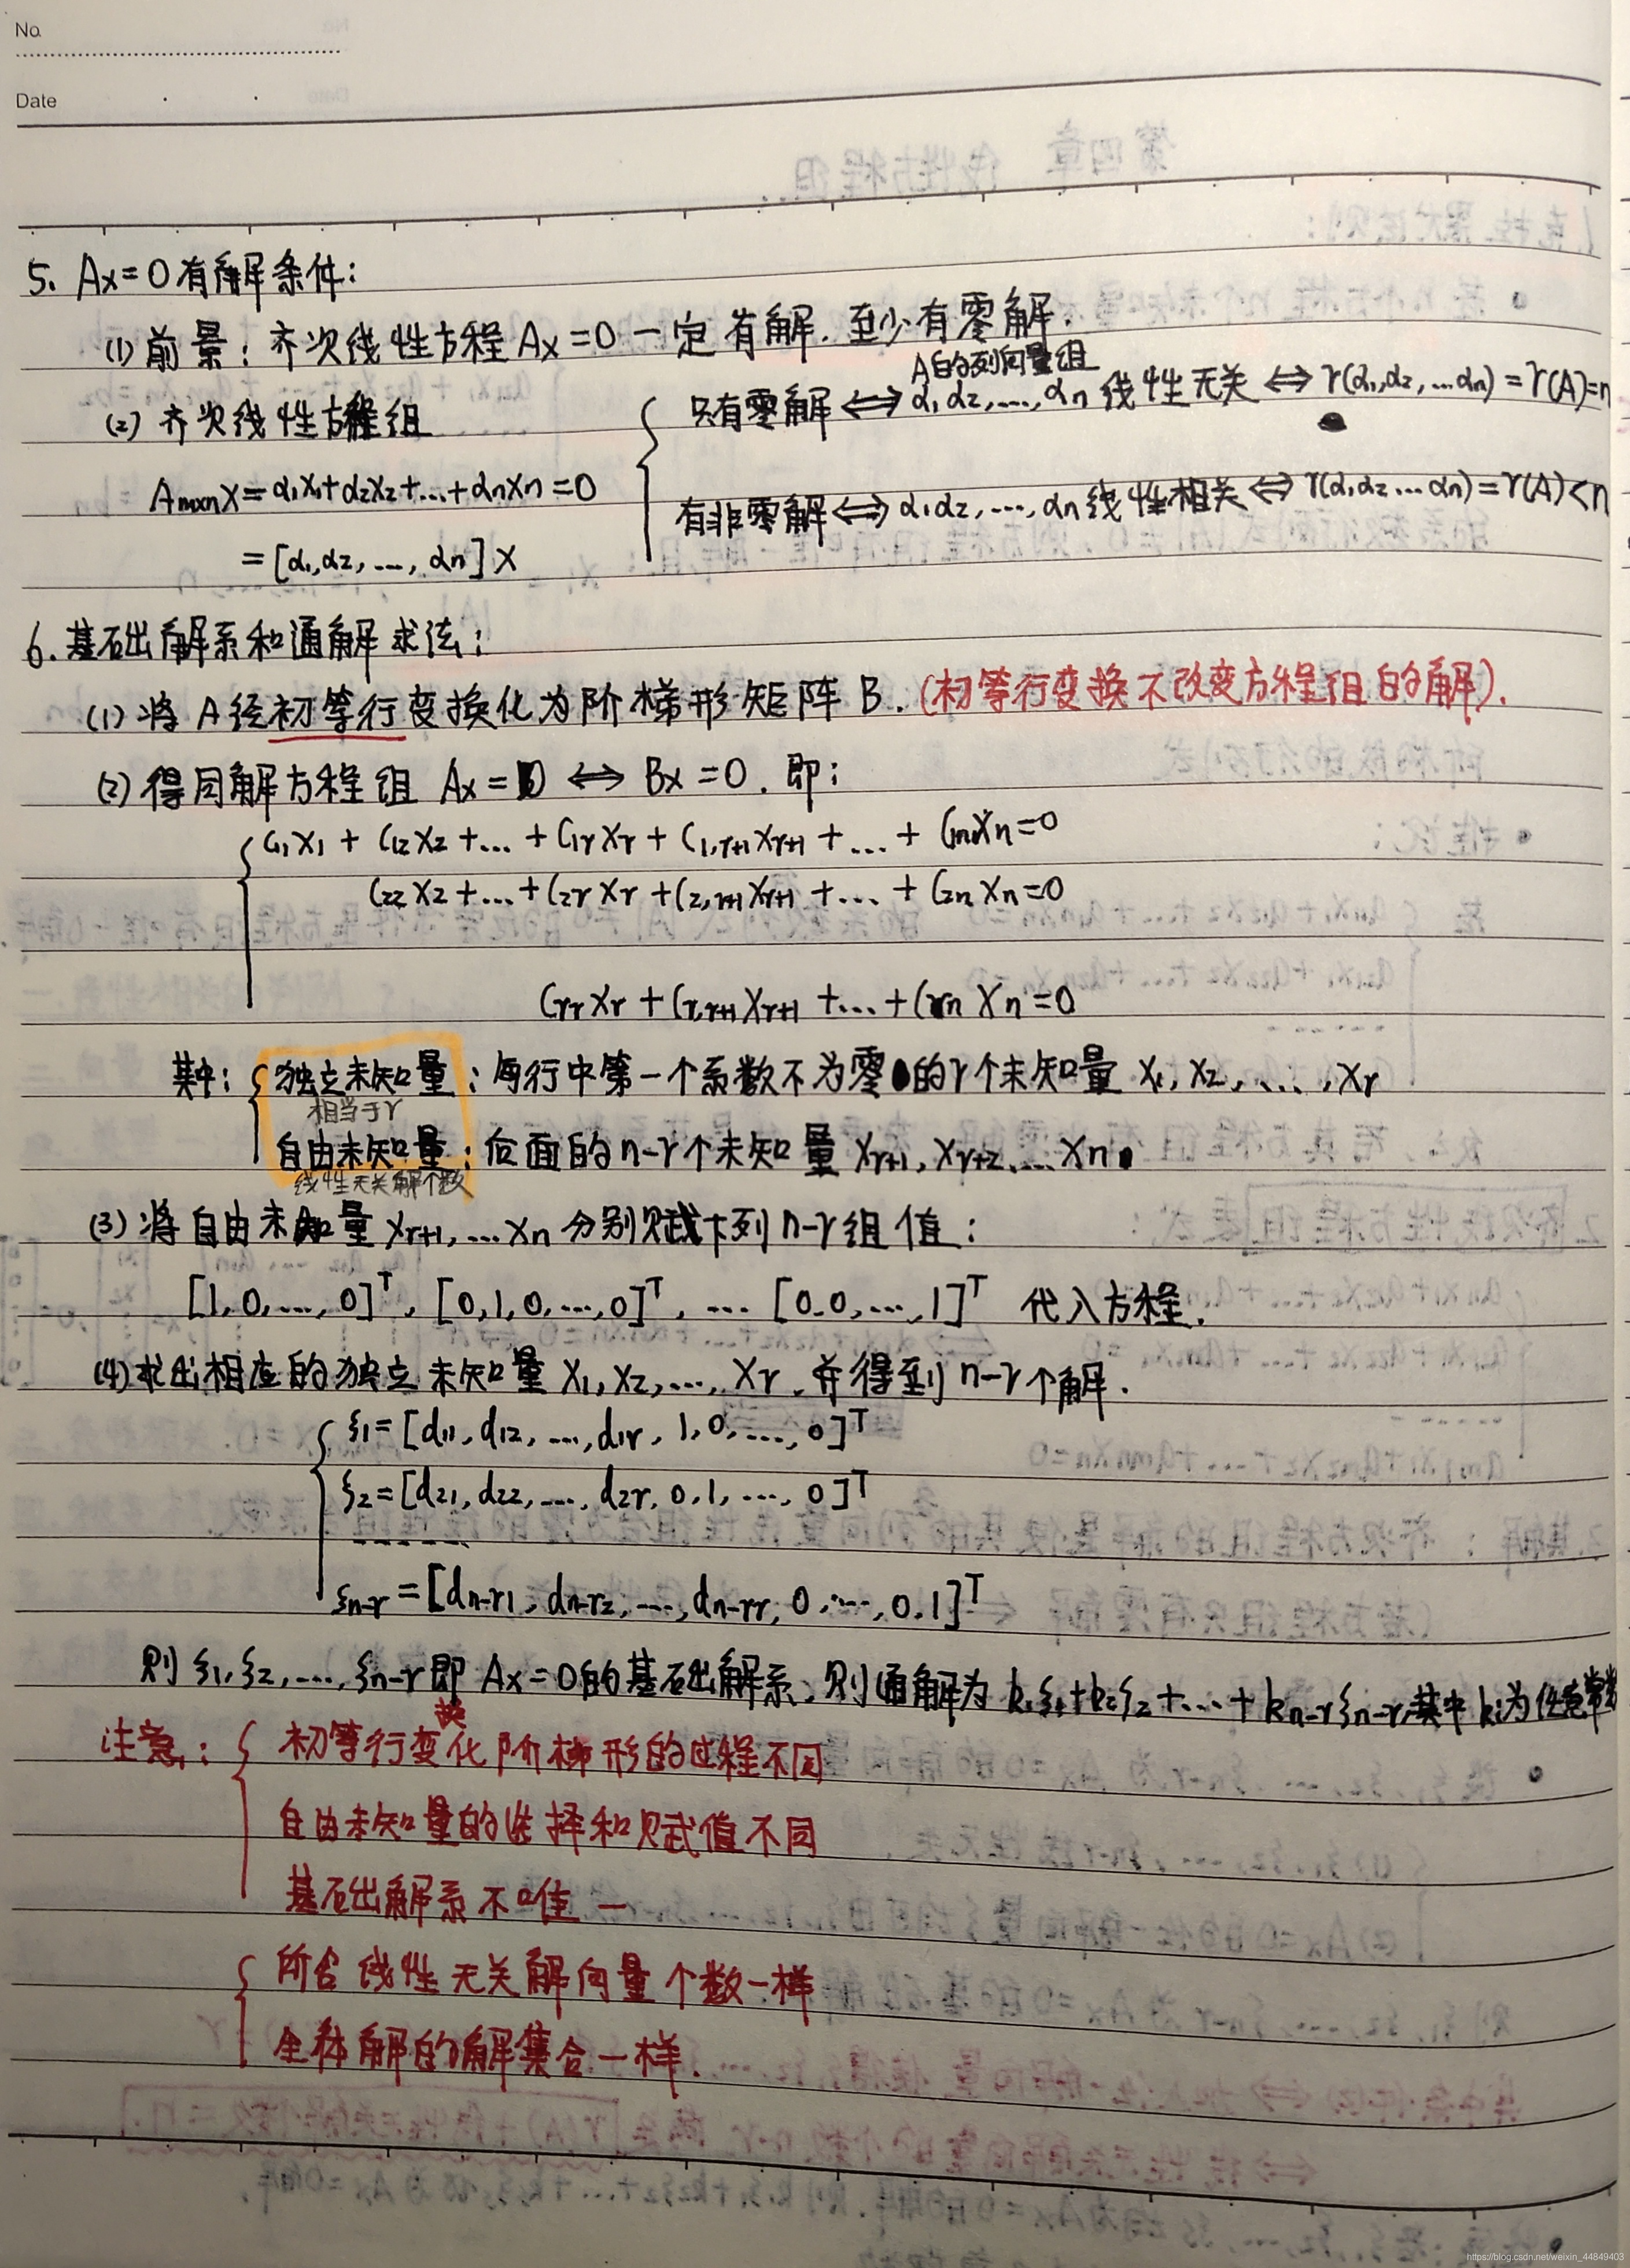 No.
Date
5. Ax=0有解条件:
(1) 前景: 齐次线性方程 Ax=0 一定有解. 至少有零解.
A的列向量组
(2) 齐次线性方程组 { 只有零解 ⇔ α₁,α₂,...,αn 线性无关 ⇔ r(α₁,α₂,...αn)=r(A)=n
Am×nX=α₁x₁+α₂x₂+...+αnxn=0
有非零解 ⇔ α₁α₂,...,αn 线性相关 ⇔ r(α₁,α₂...αn)=r(A)<n
=[α₁,α₂,...,αn]X
6.基础解系和通解求法:
(1) 将A经初等行变换化为阶梯形矩阵B. (初等行变换不改变方程组的解).
(2) 得同解方程组 Ax=0 ⇔ Bx=0. 即:
{ C₁₁X₁ + C₁₂X₂ +... + C₁rXr + C₁,r+1Xr+1 +... + C₁nXn=0
C₂₂X₂+...+C₂rXr+C₂,r+1Xr+1 +... + C₂nXn=0
CrrXr+Cr,r+1Xr+1 +...+CrnXn=0
其中: { 独立未知量: 每行中第一个系数不为零的r个未知量 X₁, X₂, ..., Xr
相当于r
自由未知量: 后面的n-r个未知量 Xr+1, Xr+2, ...Xn.
线性无关解个数
(3) 将自由未知量Xr+1,...Xn分别赋下列n-r组值:
[1,0,...,0]ᵀ, [0,1,0,...,0]ᵀ, ... [0.0,...,1]ᵀ 代入方程.
(4) 求出相应的独立未知量X₁,X₂,...,Xr, 并得到n-r个解.
{ ξ₁=[d₁₁,d₁₂,...,d₁r,1,0,...,0]ᵀ
ξ₂=[d₂₁,d₂₂,...,d₂r,0,1,...,0]ᵀ
......
ξn-r=[dn-r1,dn-r2,...,dn-rr,0,...,0,1]ᵀ
则ξ₁,ξ₂,...,ξn-r即Ax=0的基础解系,则通解为 k₁ξ₁+k₂ξ₂+...+kn-rξn-r,其中ki为任意常数
注意: { 初等行变换化阶梯形的过程不同
自由未知量的选择和赋值不同
基础解系不唯一
{ 所含线性无关解向量个数一样
全体解的解集合一样.
https://blog.csdn.net/weixin_44849403